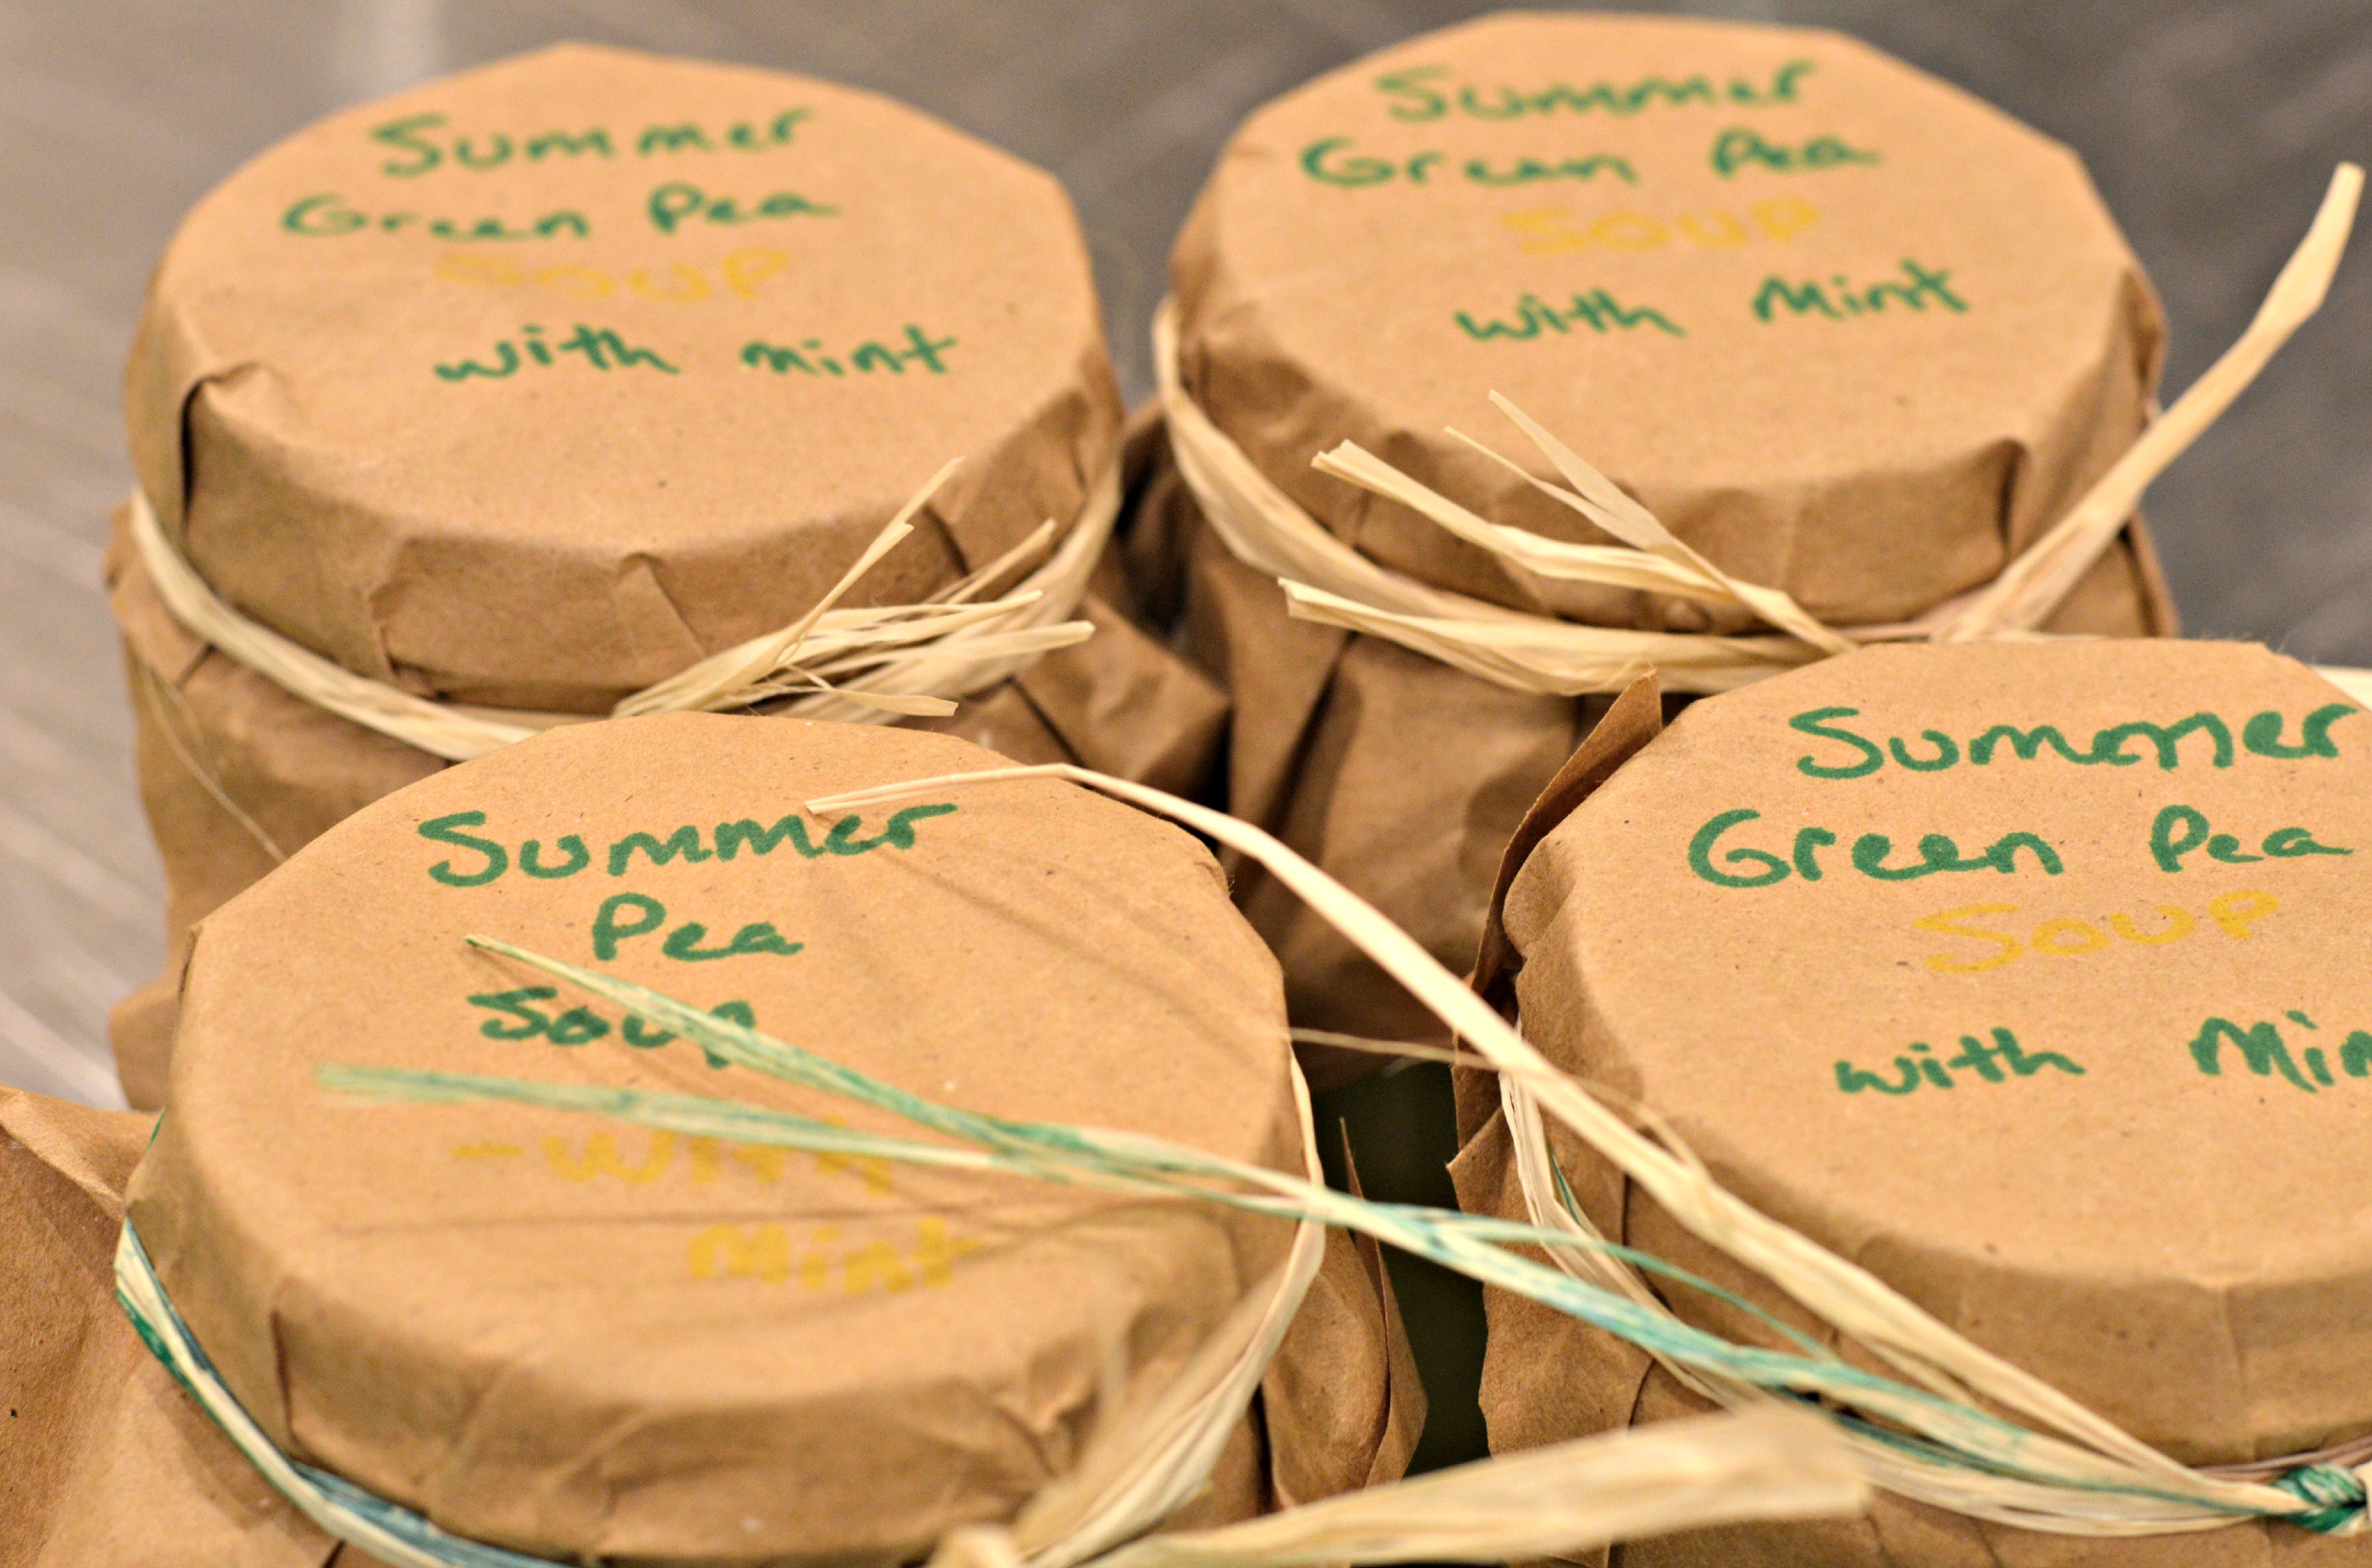 Summer
Green Pea
SOUP
with mint
Summer
Green Pea
SOUP
with Mint
Summer
Pea
Soup
-With
Mint
Summer
Green Pea
SOUP
with Min